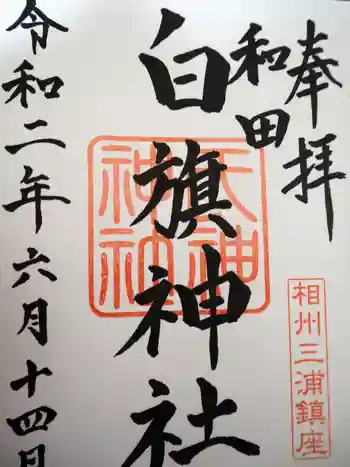 奉拝
和田
白旗神社
令和二年六月十四日
相州三浦鎮座
天神
神社